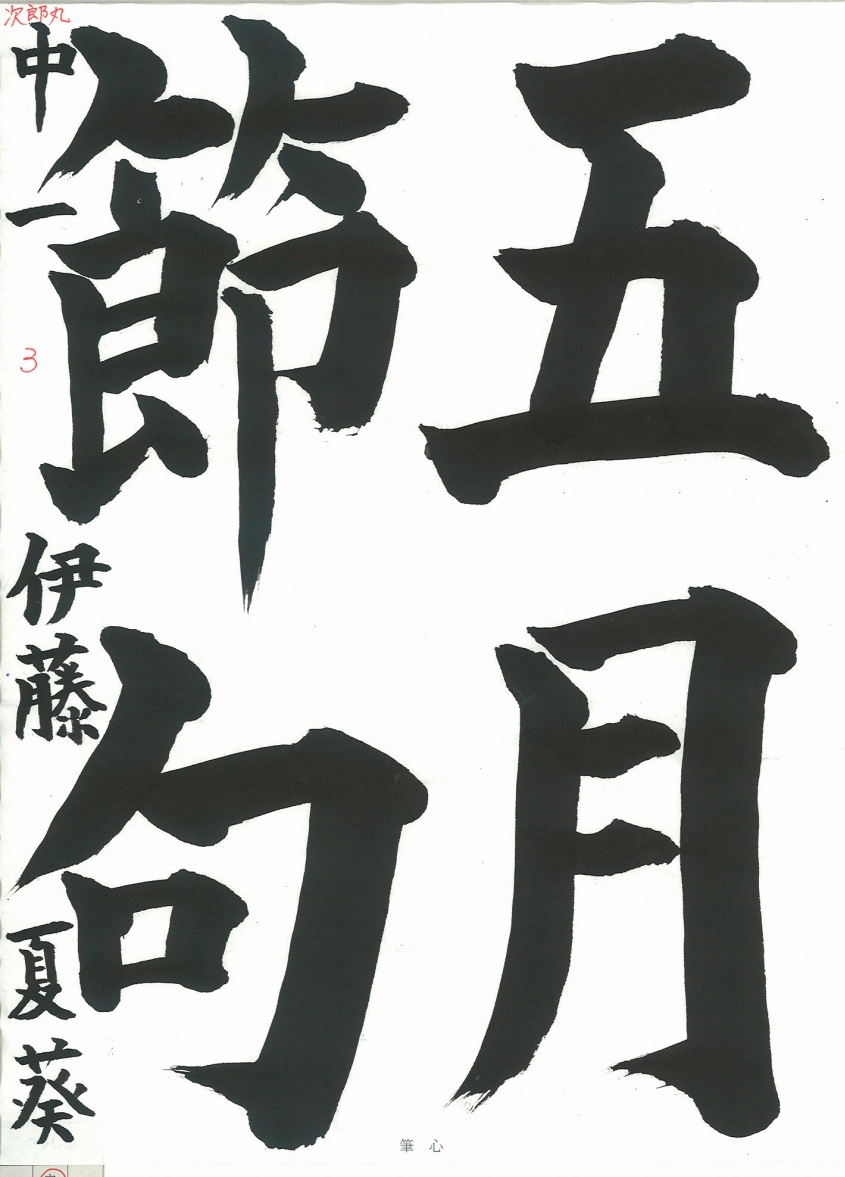 五月
節句
中一 伊藤夏葵
次郎丸
3
筆心